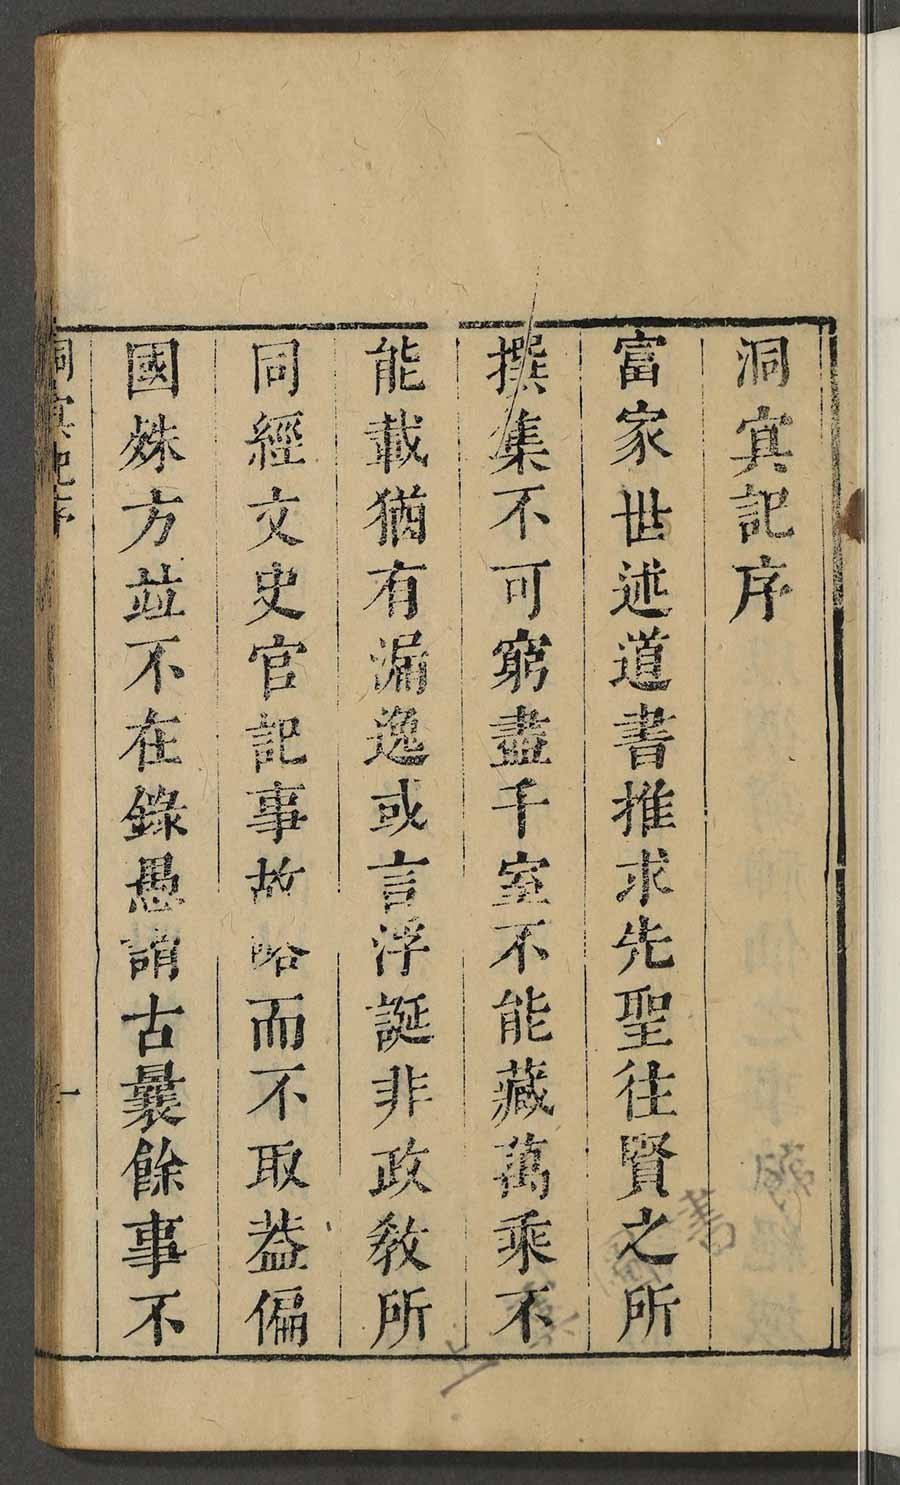 洞冥記序
富家世述道書推求先聖往賢之所
撰集不可窮盡千室不能藏萬乘不
能載猶有漏逸或言浮誕非政教所
同經文史官記事故略而不取葢偏
國殊方竝不在錄愚謂古曩餘事不
洞冥記序
一